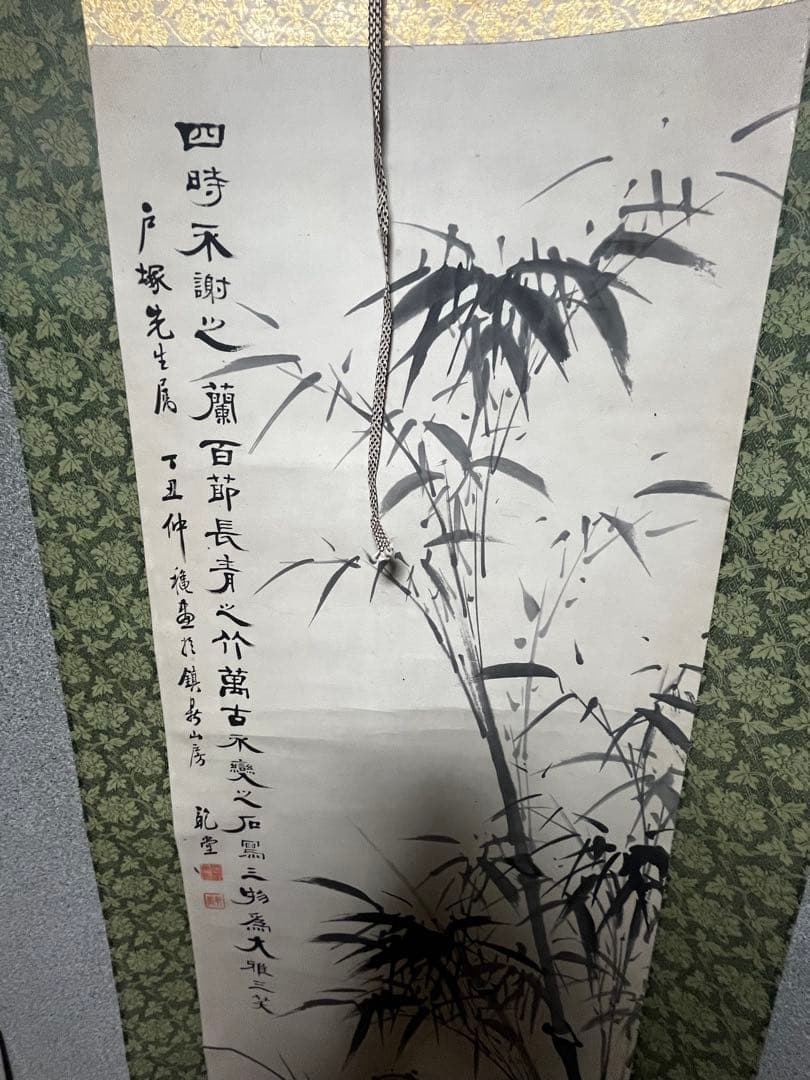 四時不謝之蘭百節長青之竹萬古不變之石寫三物為大雅三笑
户塚先生属 丁丑仲穐画於鎮山房 乾堂